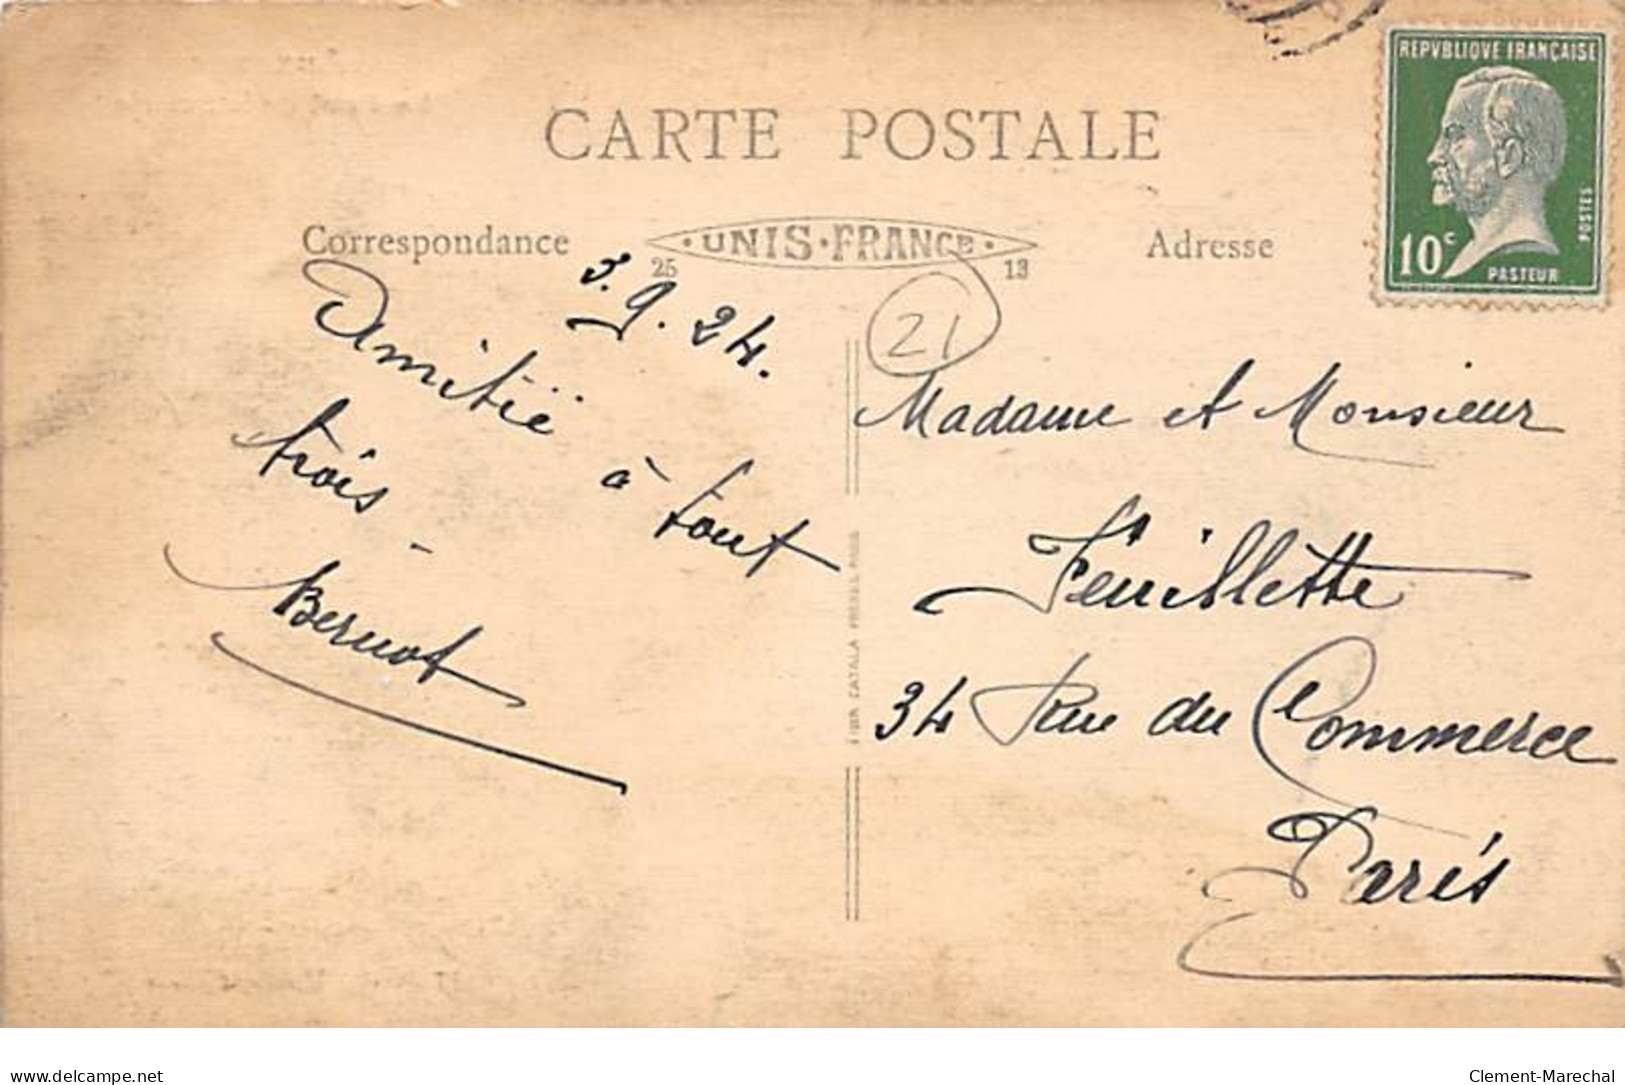 CARTE POSTALE
REPVBLIQVE FRANÇAISE
POSTES
10c
PASTEUR
Correspondance
UNIS·FRANCE
25 13
Adresse
5.9.24.
Amitié à tout
trois -
Bernot
21
IMP. CATALA FRÈRES, PARIS
Madame et Monsieur
Feuillette
34 Rue du Commerce
Paris
delcampe.net
Clement-Marechal